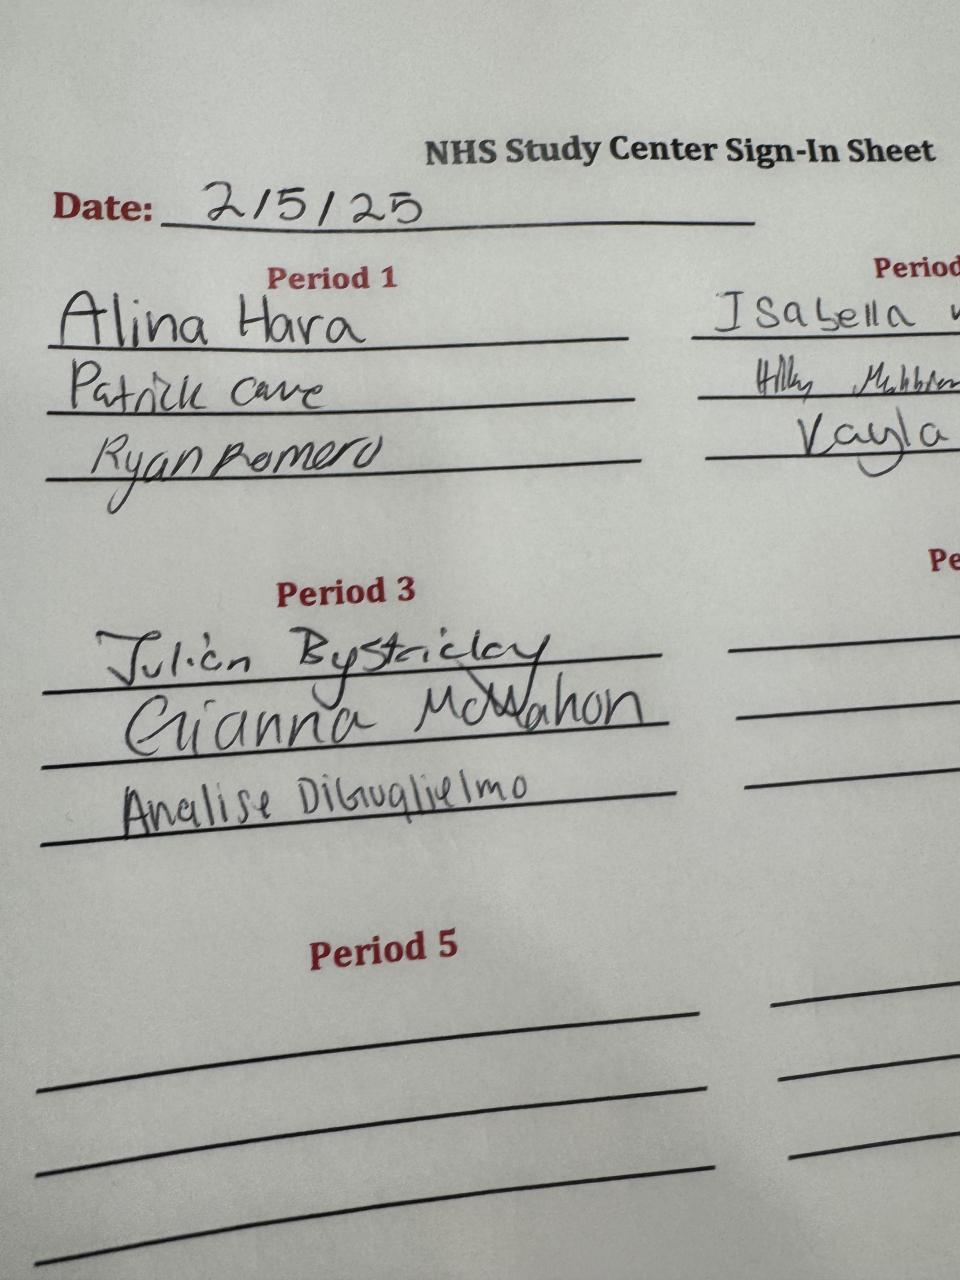 NHS Study Center Sign-In Sheet
Date: 2/5/25
Period 1
Alina Hara
Patrick Cave
Ryan Romero
Period
Isabella
Kayla
Period 3
Julian
Gianna McMahon
Analise DiGuglielmo
Period 5